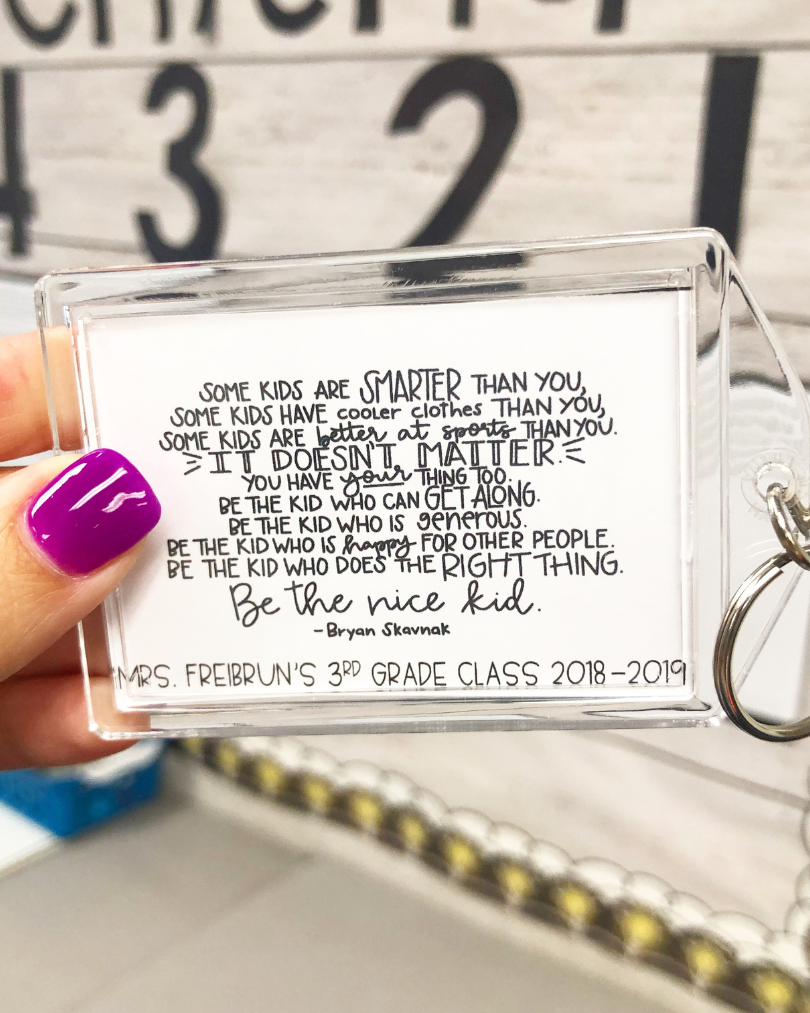 4 3 2 1
SOME KIDS ARE SMARTER THAN YOU,
SOME KIDS HAVE cooler clothes THAN YOU,
SOME KIDS ARE better at sports THAN YOU.
IT DOESN'T MATTER.
YOU HAVE your THING TOO.
BE THE KID WHO CAN GET ALONG.
BE THE KID WHO IS generous.
BE THE KID WHO IS happy FOR OTHER PEOPLE.
BE THE KID WHO DOES THE RIGHT THING.
Be the nice kid.
-Bryan Skavnak
MRS. FREIBRUN'S 3RD GRADE CLASS 2018-2019